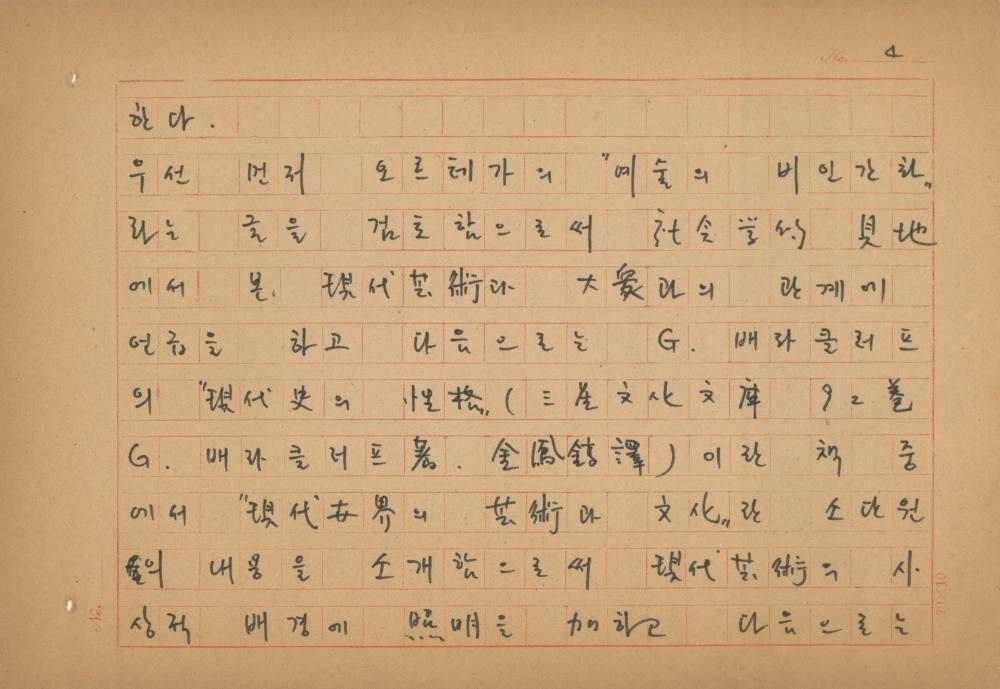 No. 4
한다.
우선 먼저 오르테가의 "예술의 비인간화"
라는 글을 검토함으로써 社会学的 見地
에서 본, 現代芸術과 大衆과의 관계에
언급을 하고 다음으로는 G. 배라클러프
의 "現代史의 性格" (三星文化文庫 92 卷
G. 배라클러프 著. 金鳳鎬 譯) 이란 책 중
에서 "現代 世界의 芸術과 文化"란 소단원
의 내용을 소개함으로써 現代芸術의 사
상적 배경에 照明을 加하고 다음으로는
No.
20×10